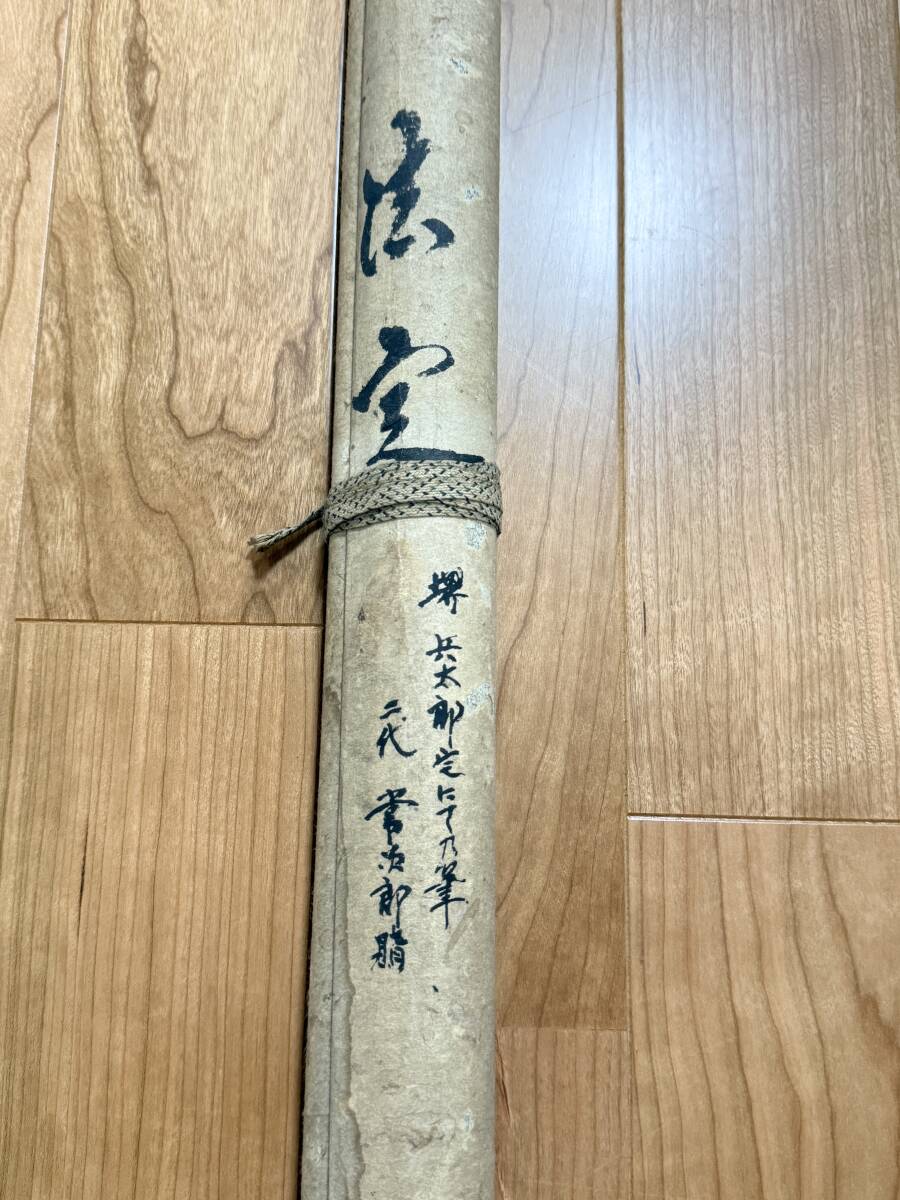 法定
堺 兵太郎宅にての筆
二代 常次郎